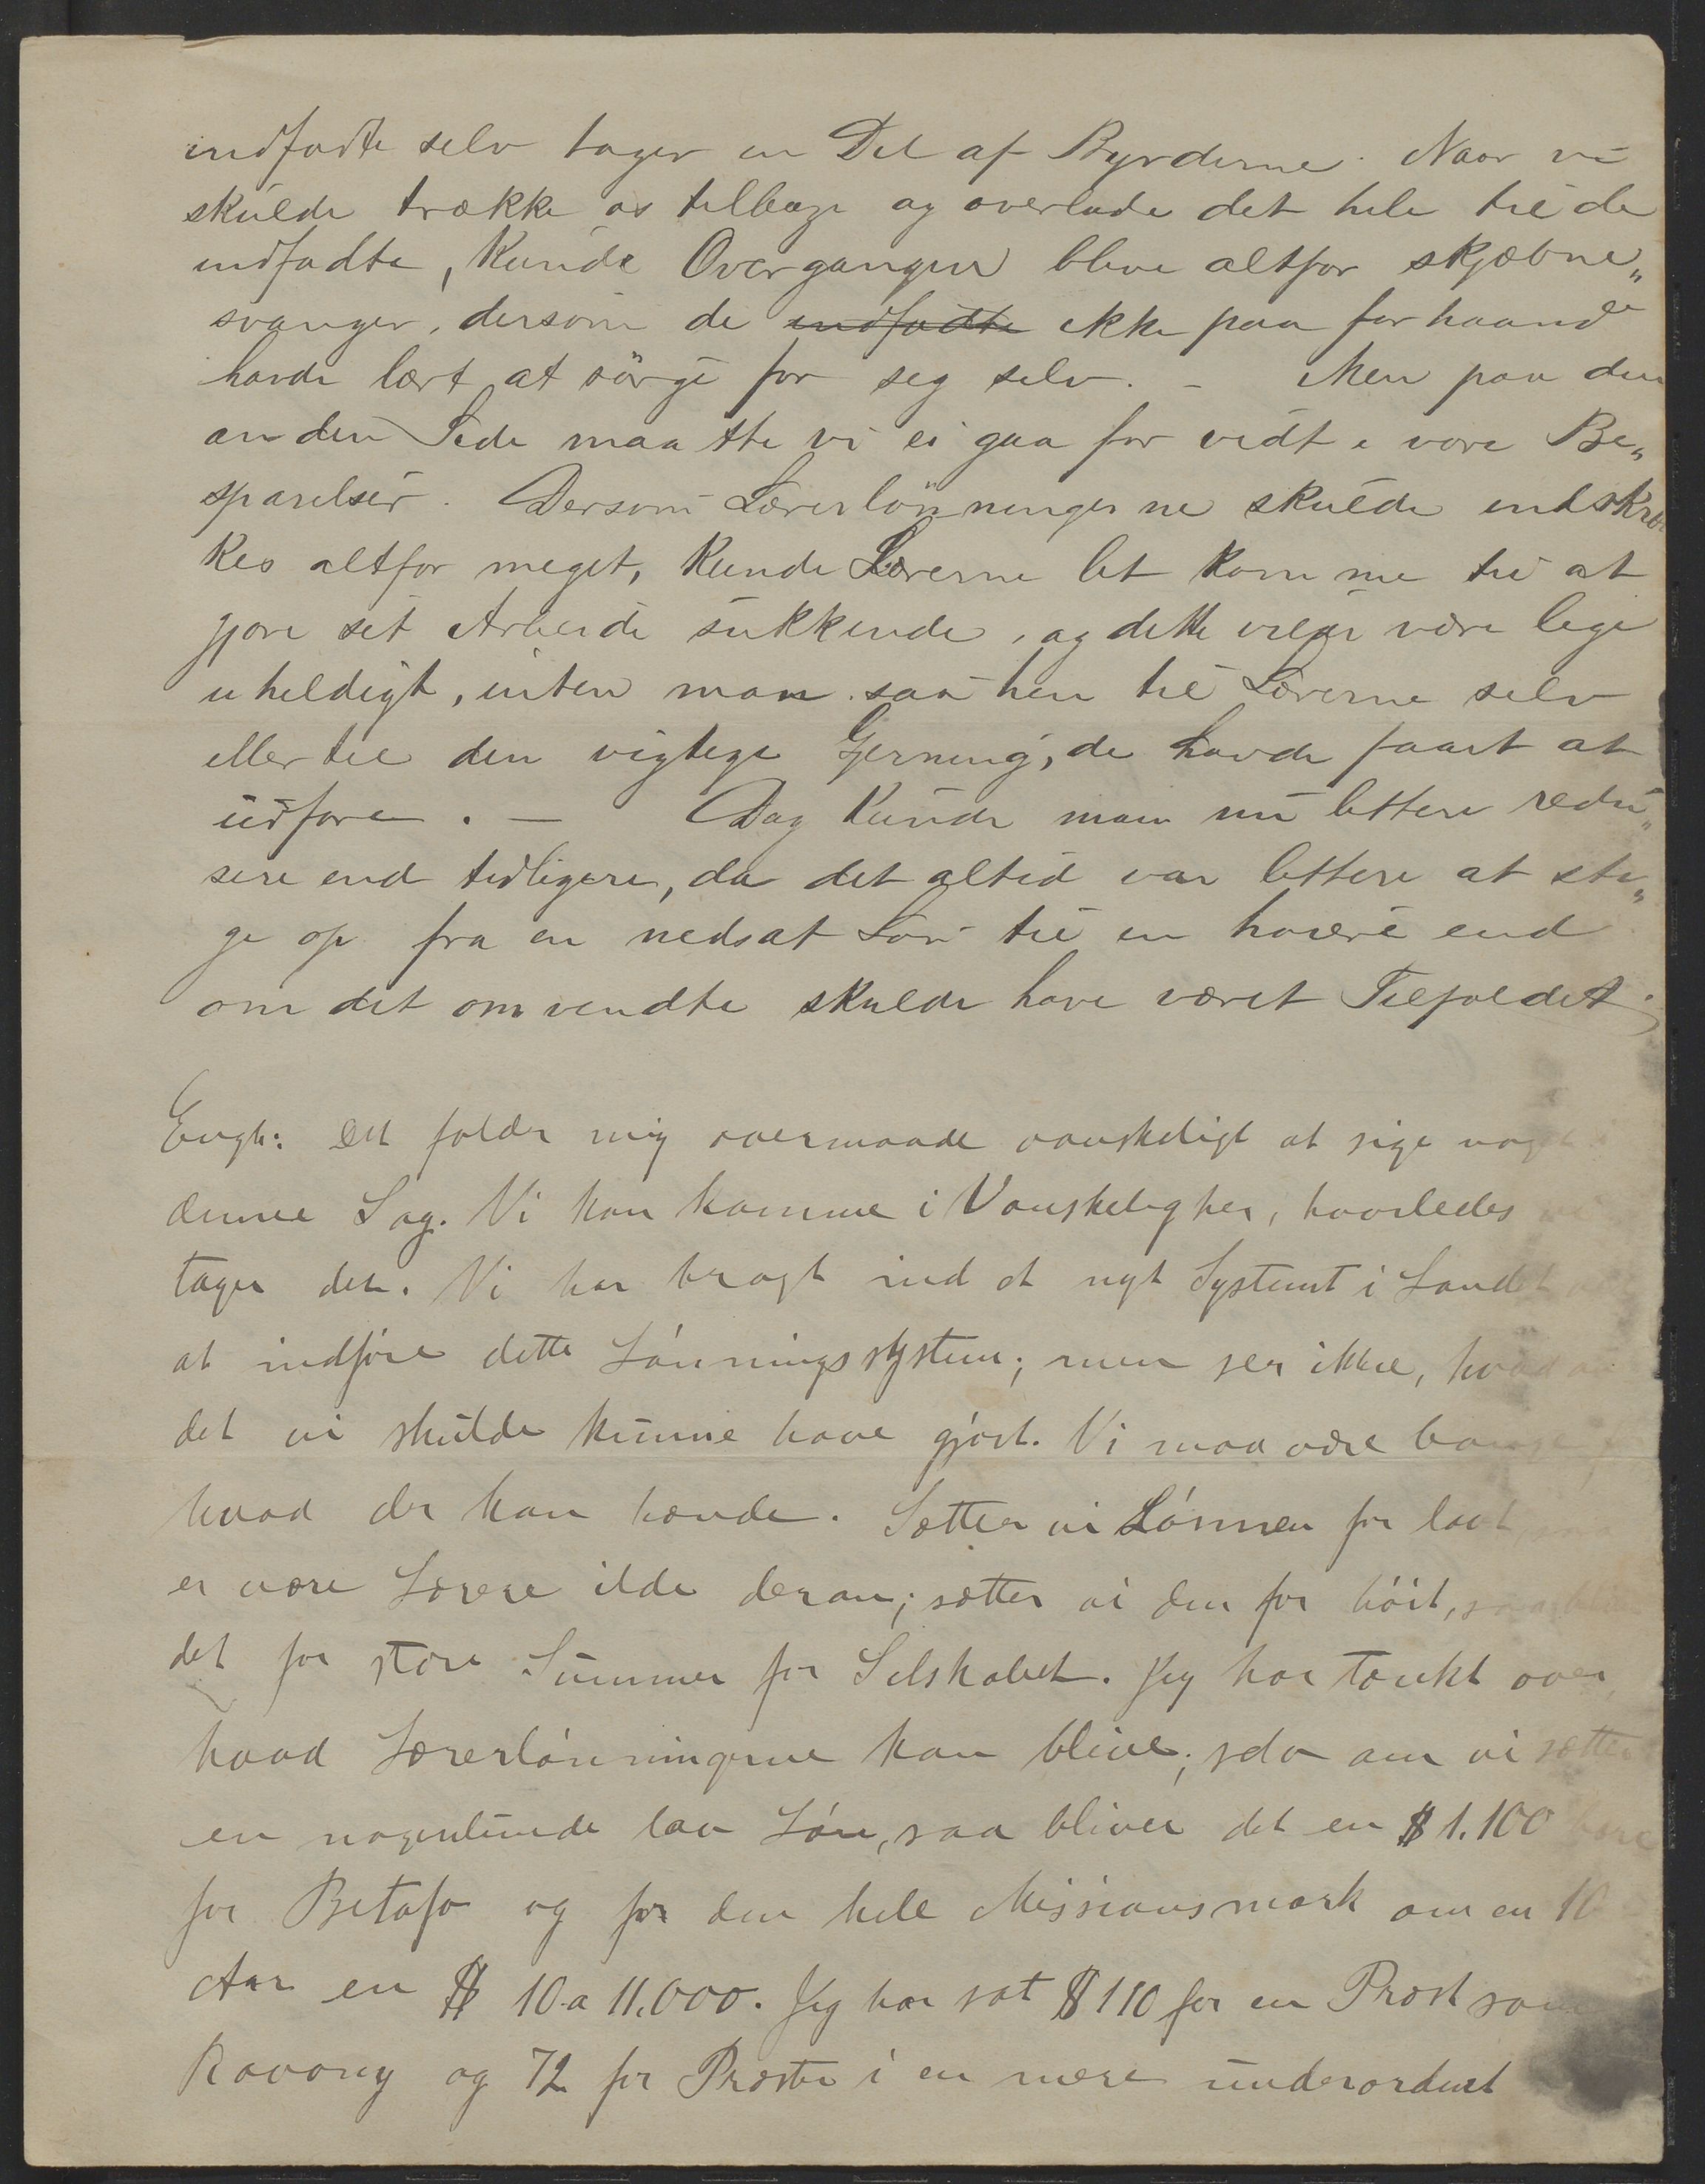 indfødte selv tager en Del af Byrderne. Naar vi
skulde trække os tilbage og overlade det hele til de
indfødte, kunde Overgangen blive altfor skjæbne„
svanger, dersom de indfødte ikke paa forhaand
havde lært at sörge for seg selv. – Men paa den
anden Side maatte vi ei gaa for vidt i vore Be„
sparelser. Dersom Lærerlönningerne skulde indskræn
kes altfor meget, kunde Lærerne let komme til at
gjøre sit Arbeide sukkende, og dette vilde være lige
uheldigt, enten man saa hen til Lærerne selv
eller til den vigtige Gjerning, de havde faaet at
udføre. – Dog kunde man nu lettere redu„
sere end tidligere, da det altid var lettere at sti„
ge op fra en nedsat Løn til en høiere end
om det omvendte skulde have været Tilfældet.
Engh: Det falder mig overmaade vanskeligt at sige noget
denne Sag. Vi kan komme i Vanskeligher, hvorledes vi
tager den. Vi har bragt ind et nyt Systemt i Landet
at indføre dette Lønningssystem; men ser ikke, hvad
det vi skulde kunne have gjórt. Vi maa være bange
hvad der kan hænde. Sætter vi Lónnen for lavt,
er vore Lærere ilde deran; sætter vi den for hóit, saa
det for store Summer for Selskabet. Jeg har tænkt over,
hvad Lærerlónningerne kan blive; selv om vi sætter
en nogenlunde lav Lón, saa bliver det en $ 1.100
for Betafo og for den hele Missionsmark om en 10
Aar en $ 10 a 11.000. Jeg har sat $ 110 for en Præst som
Ravony og 72 for Præster i en mere underordnet